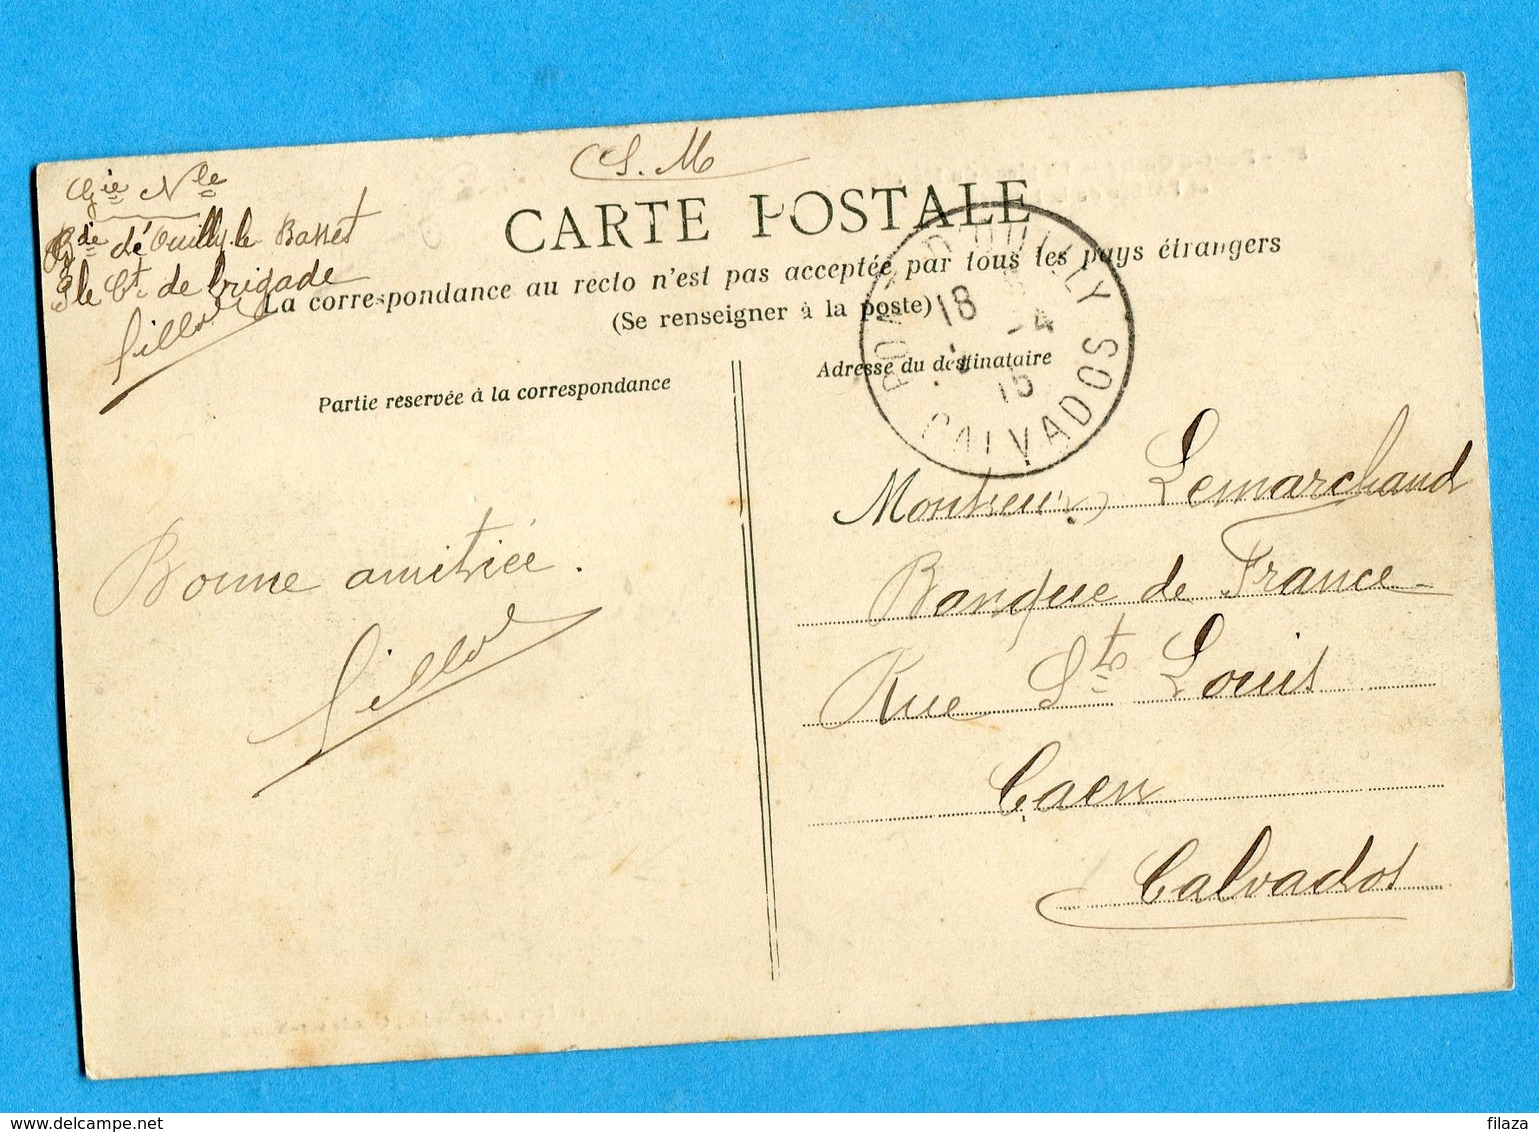 (S. M
Gie Nle
Bde d'Ouilly le Basset
Le Ct de brigade
CARTE POSTALE
La correspondance au recto n'est pas acceptée par tous les pays étrangers
(Se renseigner à la poste)
Partie réservée à la correspondance
Adresse du destinataire
PONT D'OUILLY
18
-4
15
CALVADOS
Bonne amitiée.
Monsieur Lemarchand
Banque de France
Rue St Louis
Caen
Calvados
filaza